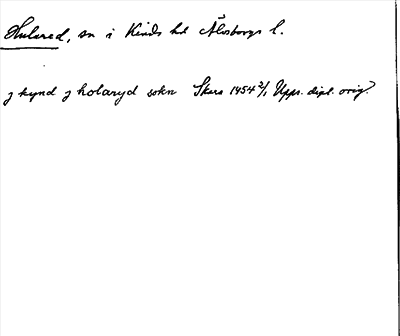 Hulared, sn i Kinds hd Älvsborgs l.
j kynd j holaryd sokn Skara 1454 3/1 Upps. dipl. orig.